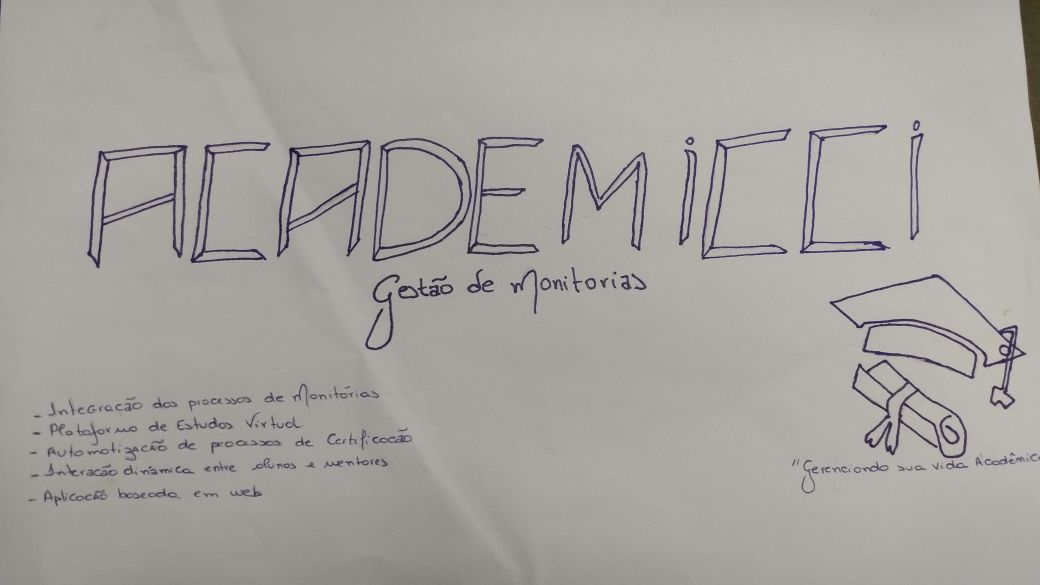 ACADEMiCCi
Gestão de Monitorias
- Integração dos processos de Monitórias
- Plataforma de Estudos Virtual
- Automatização de processos de Certificação
- Interação dinâmica entre alunos e mentores
- Aplicação baseada em web
"Gerenciando sua vida Acadêmic